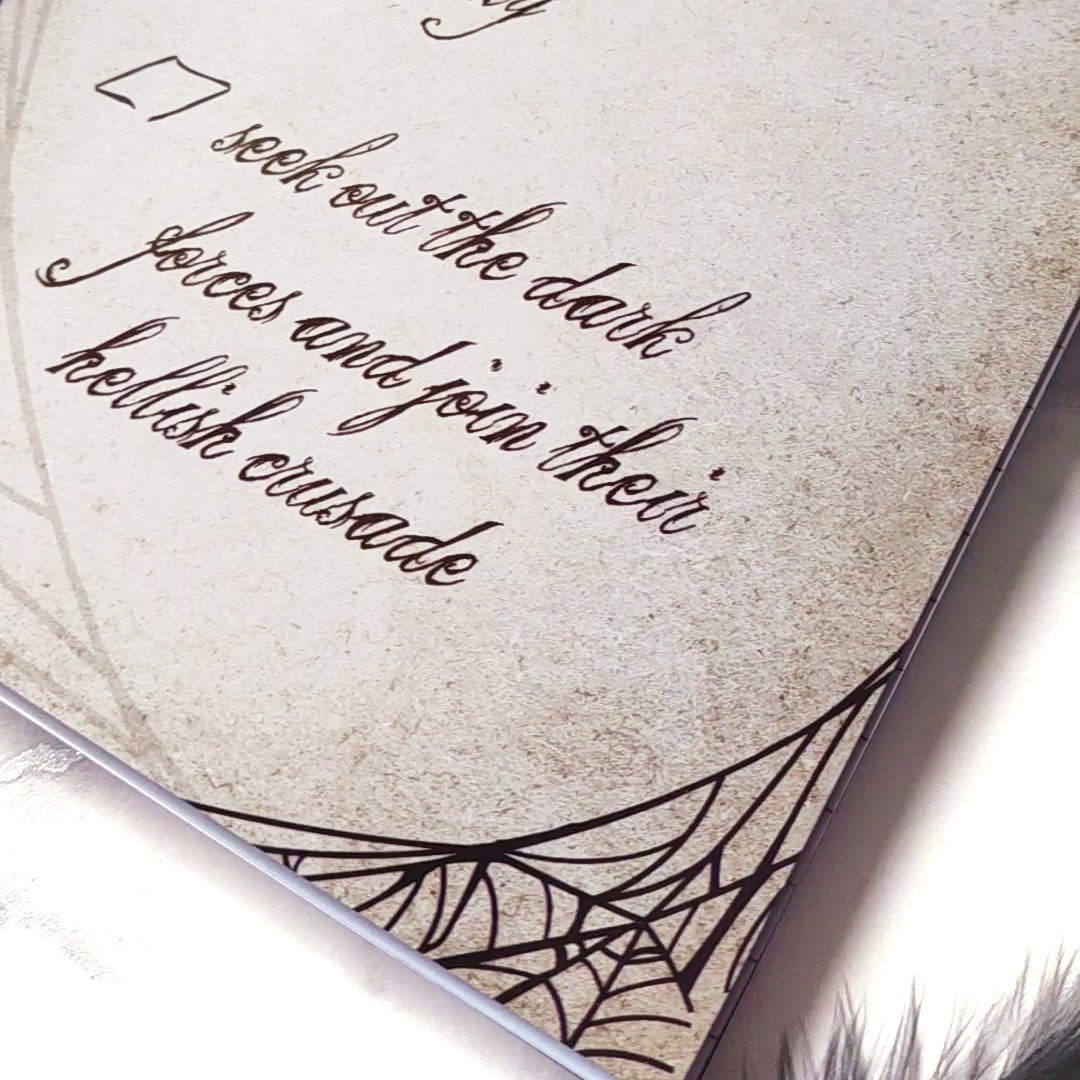 seek out the dark
forces and join their
hellish crusade